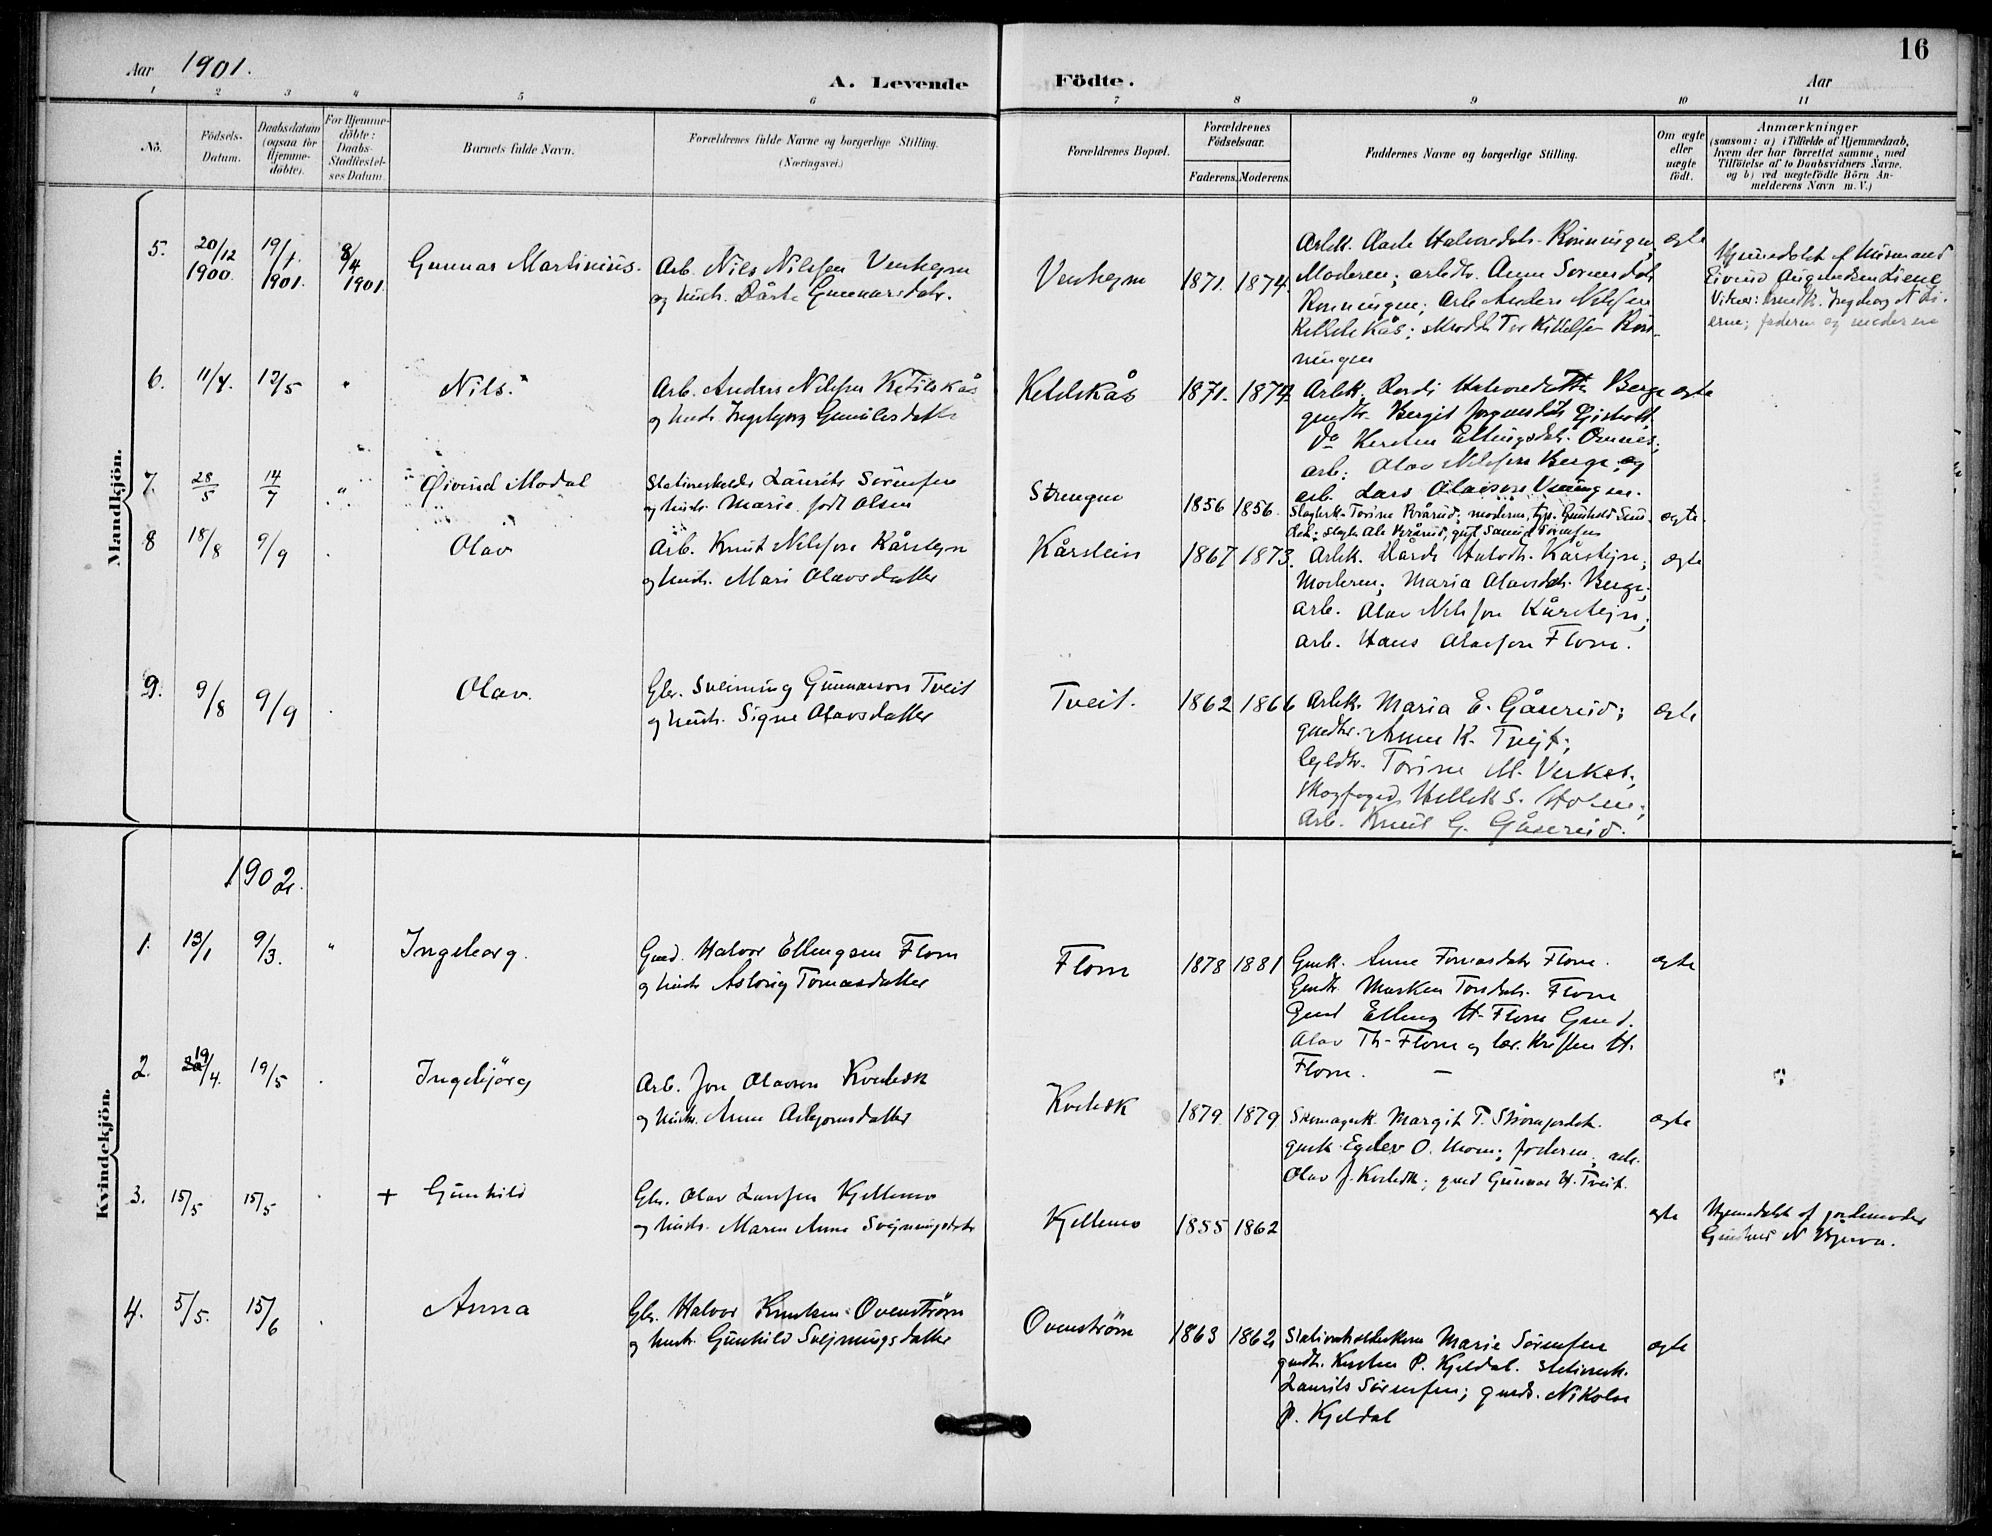 Aar 1901.
A. Levende
Födte.
Aar
16
1 2 3 4 5 6 7 8 9 10 11
No.
Födsels-
Datum.
Daabsdatum
(ogsaa for
Hjemme-
döbte).
For Hjemme-
döbte:
Daabs-
Stadfæstel-
ses Datum.
Barnets fulde Navn.
Forældrenes fulde Navne og borgerlige Stilling.
(Næringsvei.)
Forældrenes Bopæl.
Forældrenes
Födselsaar.
Faderens. Moderens.
Faddernes Navne og borgerlige Stilling.
Om ægte
eller
uægte
födt.
Anmærkninger
(saasom: a) i Tilfælde af Hjemmedaab,
hvem der har forrettet samme, med
Tilföielse af to Daabsvidners Navne.
og b) ved uægtefödte Börn An-
melderens Navn m. V.)
Mandkjön.
5. 20/12 1900. 19/1 1901. 8/4 1901
Gunnar Martinius.
Arb. Nils Nilssen Venhegn
og hust. Dårte Gunnarsdatr.
Venhegn
1871. 1874.
Arbk. Aaste Halvorsdatr. Rönningen,
Moderen; arbdtr. Anne
Rönningen; Arb. Anders Nilssen
Ketilskås; Tor Kittelsen Rön-
ningen
ægte
Hjemmedøbt af Husmand
Eivind Augundsen Liene
Ingeborg N Li-
erne; faderen og moderen
6. 11/4. 12/5 "
Nils.
Arb. Anders Nilssen Ketilskås
og hustr. Ingebjørg Gunulsdatter
Ketilskås
1871. 1874
Arbk. Halvorsdatter Berge
gmdtr. Bergit
Do Kirsten Ellingsdatr. Omnes,
arb. Olav Nilssen Berge, og
arb. Lars Olavson
ægte
7. 28/5 14/7 "
Øivind Modal
Stationsholder Laurits Sörensen
og hustr. Marie født Olsen
Strengen
1856 1856.
Torine Brårud, moderen, Gunhild
ægte.
8 18/8 9/9
Olav
Arb. Knut Nilssen Kårstejn
og hustr. Mari Olavsdatter
Kårstein
1867 1873.
Arbk. Halvdtr. Kårstejn,
Moderen; Maria Olavsdatr. Berge,
arb. Olav Nilssen Kårstejn,
arb. Hans Olavsson Flom.
ægte
9. 9/8 9/9
Olav.
Gbr. Sveinung Gunnarson Tveit
og hustr. Signe Olavsdatter
Tveit.
1862 1866
Arbk. Maria E. Gåsereid;
gmdtr. Anne K. Tvejt;
Torine M. Verket,
Skogfoged Hellek S. Holm;
Arb. Knut G. Gåsereid.
ægte
Kvindekjön.
1902.
1. 13/1 9/3. "
Ingeborg.
Gmd. Halvor Ellingsen Flom
og hustr. Aslaug Tomasdatter
Flom
1878 1881
Gmk. Anne Tomasdatr Flom.
Gmdtr. Marken Torsdatr. Flom
Gmd Elling H. Flom Gmd.
Olav Th. Flom og lær. Kristen H.
Flom.
ægte
2. 19/4. 19/5
Ingebjörg
Arb. Jon Olavsen Kvebæk
og hustr. Anne Asbjørnsdatter
Kvebæk
1879. 1879.
Skomagerk. Margit T.
gmk. Egelev O. Moen; faderen, arb.
Olav J. Kvebæk; gmd Gunnar H. Tveit.
ægte
3. 15/5 15/5
+ Gunhild
Gbr. Olav Larssen Kjellemo
og hustr. Maren Anne Svejnungsdatr
Kjellemo
1855 1862
ægte
Hjemmedøbt af jordemoder
Gunhild N Bjerva.
4. 5/5. 15/6
Anna
Gbr. Halvor Knutsen Ovenström
og hustr. Gunhild Svejnungsdatter
Ovenström
1863 1862
Stationsholderkone Marie Sörensen
gmdtr. Kirsten P. Kjeldal.
Laurits Sörensen; gmds. Nikolai
P. Kjeldal
ægte